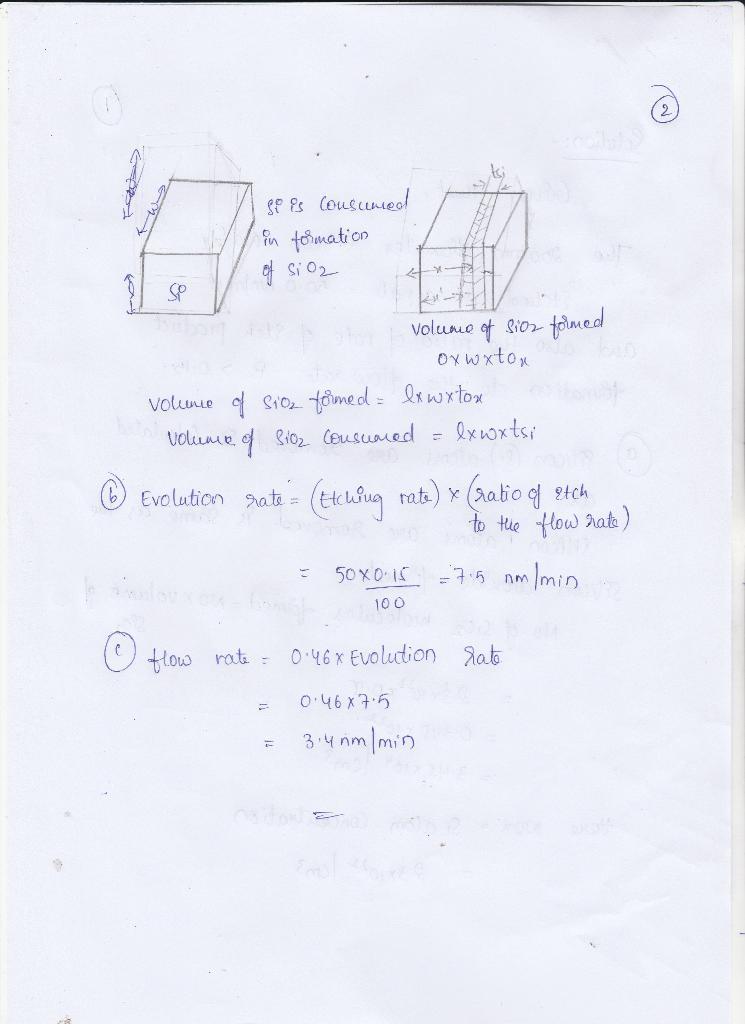 2
1
tsi
Si is consumed
in formation
of SiO2
Si
w
x
x'
volume of SiO2 formed
o x w x tox
volume of SiO2 formed = l x w x tox
volume of SiO2 consumed = l x w x tsi
(b) Evolution rate = (Etching rate) x (ratio of etch
to the flow rate)
= 50 x 0.15 / 100 = 7.5 nm/min
(c) flow rate = 0.46 x Evolution Rate
= 0.46 x 7.5
= 3.4 nm/min
=